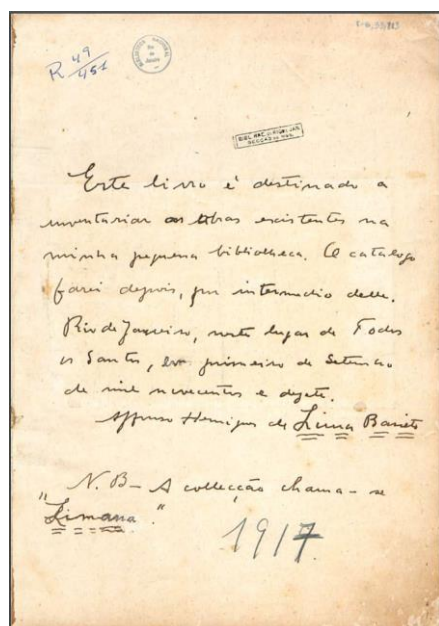 R 49/451
BIBLIOTHECA NACIONAL
Rio de Janeiro
Este livro é destinado a
inventariar as obras existentes na
minha pequena bibliotheca. O catalogo
farei depois, por intermedio delle.
Rio de Janeiro, neste lugar de Todos
os Santos, em primeiro de Setembro
de mil novecentos e dezete.
Affonso Henriques de Lima Barreto
N. B – A collecção chama-se
"Limana".
1917